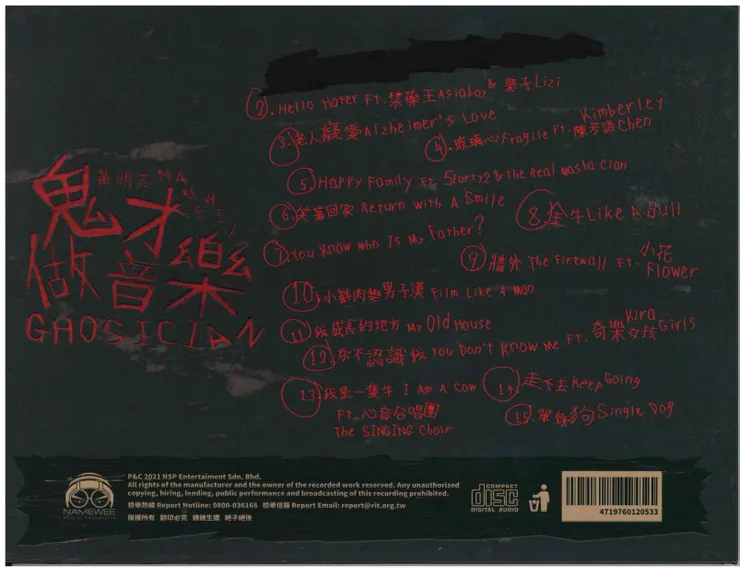 2. Hello Hater Ft. 禁藥王Asiaboy & 栗子Lizi
3. 老人癡愛Alzheimer's Love
4. 玻璃心Fragile Ft. 陳芳語 Kimberley Chen
5. Happy Family Ft. 5forty2 & The Real Masta Clan
6. 笑著回家 Return With A Smile
7. You Know Who Is My Father?
8. 金牛Like A Bull
9. 牆外 The Firewall Ft. 小花 Flower
10. 小鮮肉墊男子漢 Film Like A Man
11. 我成長的地方 My Old House
12. 你不認識我 You Don't Know Me Ft. 奇樂女孩 Kira Girls
13. 我是一隻牛 I Am A Cow
Ft. 心音合唱團
The SINGING Choir
14. 走下去Keep Going
15. 單身狗Single Dog
黃明志NAMEWEE
鬼才
做音樂
GHOSICIAN
P&C 2021 NSP Entertaiment Sdn. Bhd.
All rights of the manufacturer and the owner of the recorded work reserved. Any unauthorized
copying, hiring, lending, public performance and broadcasting of this recording prohibited.
檢舉熱線 Report Hotline: 0800-036168 檢舉信箱 Report Email: report@rit.org.tw
版權所有 翻印必究 雞雞生鏽 絕子絕孫
NAMEWEE
COMPACT
disc
DIGITAL AUDIO
4719760120533